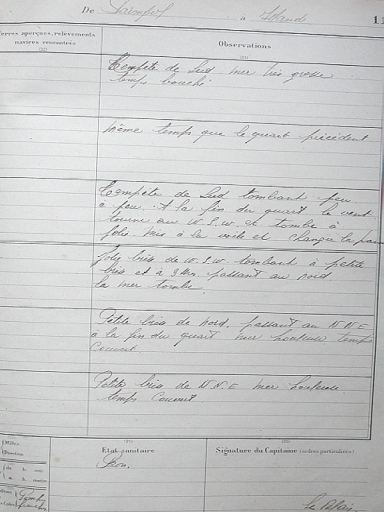 De Paimpol à Islande 1
Terres aperçues, relèvements
navires rencontrés
Observations
Tempête de Sud mer très grosse
temps bouché
même temps que le quart précédent
Tempête de Sud tombant peu
à peu. A la fin du quart le vent
tourne au W.S.W et tombe à
jolie mis à la voile et changer la
Joly bris de W.S.W. tombant à petite
bris et à 3 hrs. passant au nord
la mer tombe.
Petite bris de nord. passant au NNE
à la fin du quart mer houleuse temps
couvert
Petite bris de NNE mer houleuse
temps couvert
Etat sanitaire
Bon.
Signature du Capitaine (ordres particuliers)
Milles